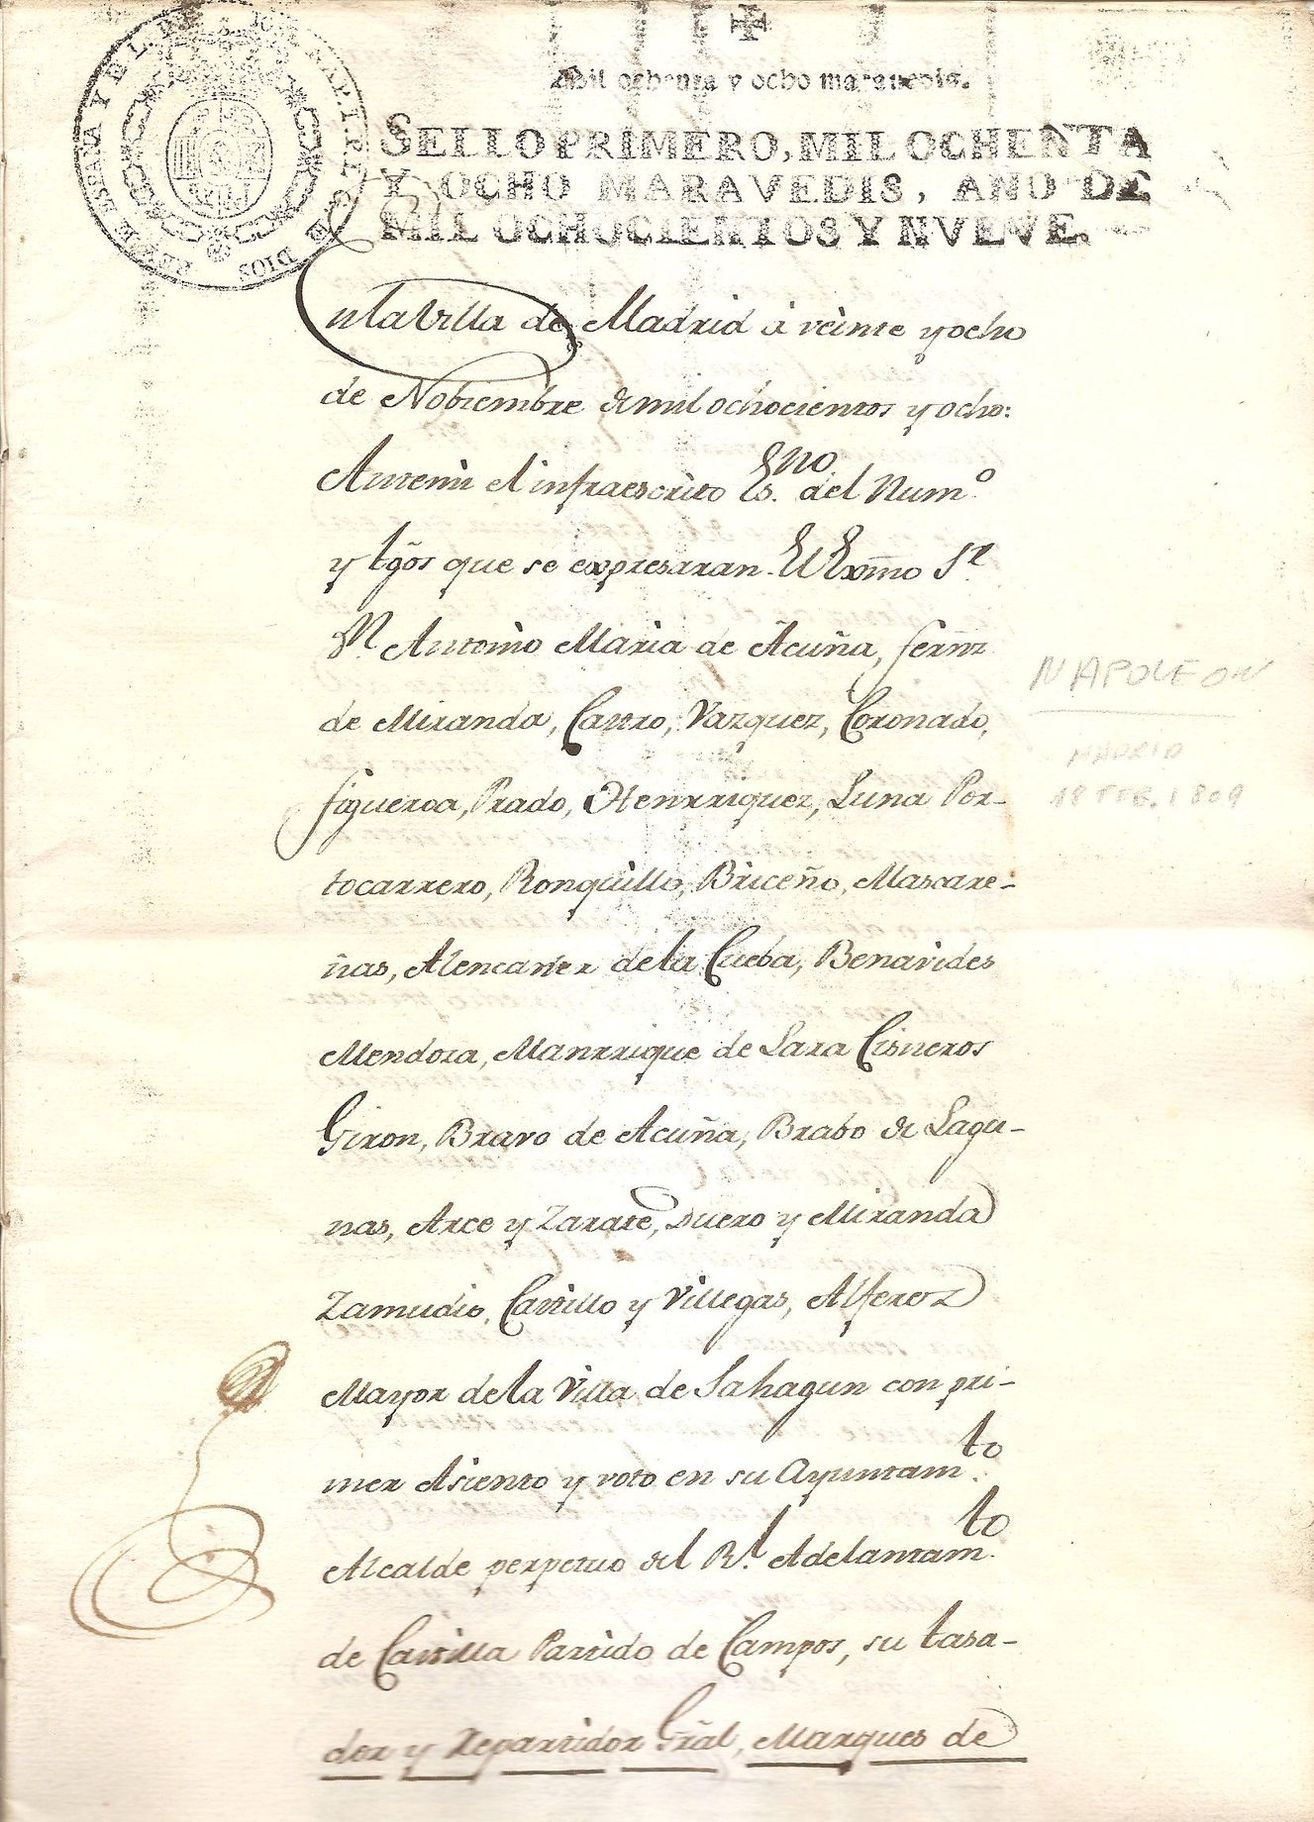 Mil ochenta y ocho maravedis.
SELLO PRIMERO, MIL OCHENTA
Y OCHO MARAVEDIS, AÑO DE
MIL OCHOCIENTOS Y NVEVE.
REY DE ESPAÑA Y DE L. DIOS
En la Villa de Madrid á veinte y ocho
de Nobiembre de mil ochocientos y ocho:
Antemi el infraescrito Es.no del Num.o
y tgõs que se expresaran. El Exm̃o S.r
D.n Antonio Maria de Acuña, fern̄z
de Miranda, Castro, Vazquez, Coronado,
figueroa, Prado, Henrriquez, Luna Por-
tocarrero, Ronquillo, Briceño, Mascare-
ñas, Alencaster de la Cueba, Benavides
Mendoza, Manrrique de Lara Cisneros
Giron, Bravo de Acuña, Brabo de Lagu-
nas, Arce y Zarate, Duero y Miranda
Zamudio, Castillo y Villegas, Alferez
Mayor de la Villa de Sahagun con pri-
mer Asiento y voto en su Ayuntam.to
Alcalde perpetuo del R.l Adelantam.to
de Castilla Partido de Campos, su tasa-
dor y Repartidor Grãl, Marques de
NAPOLEON
MADRID
18 FEB. 1809